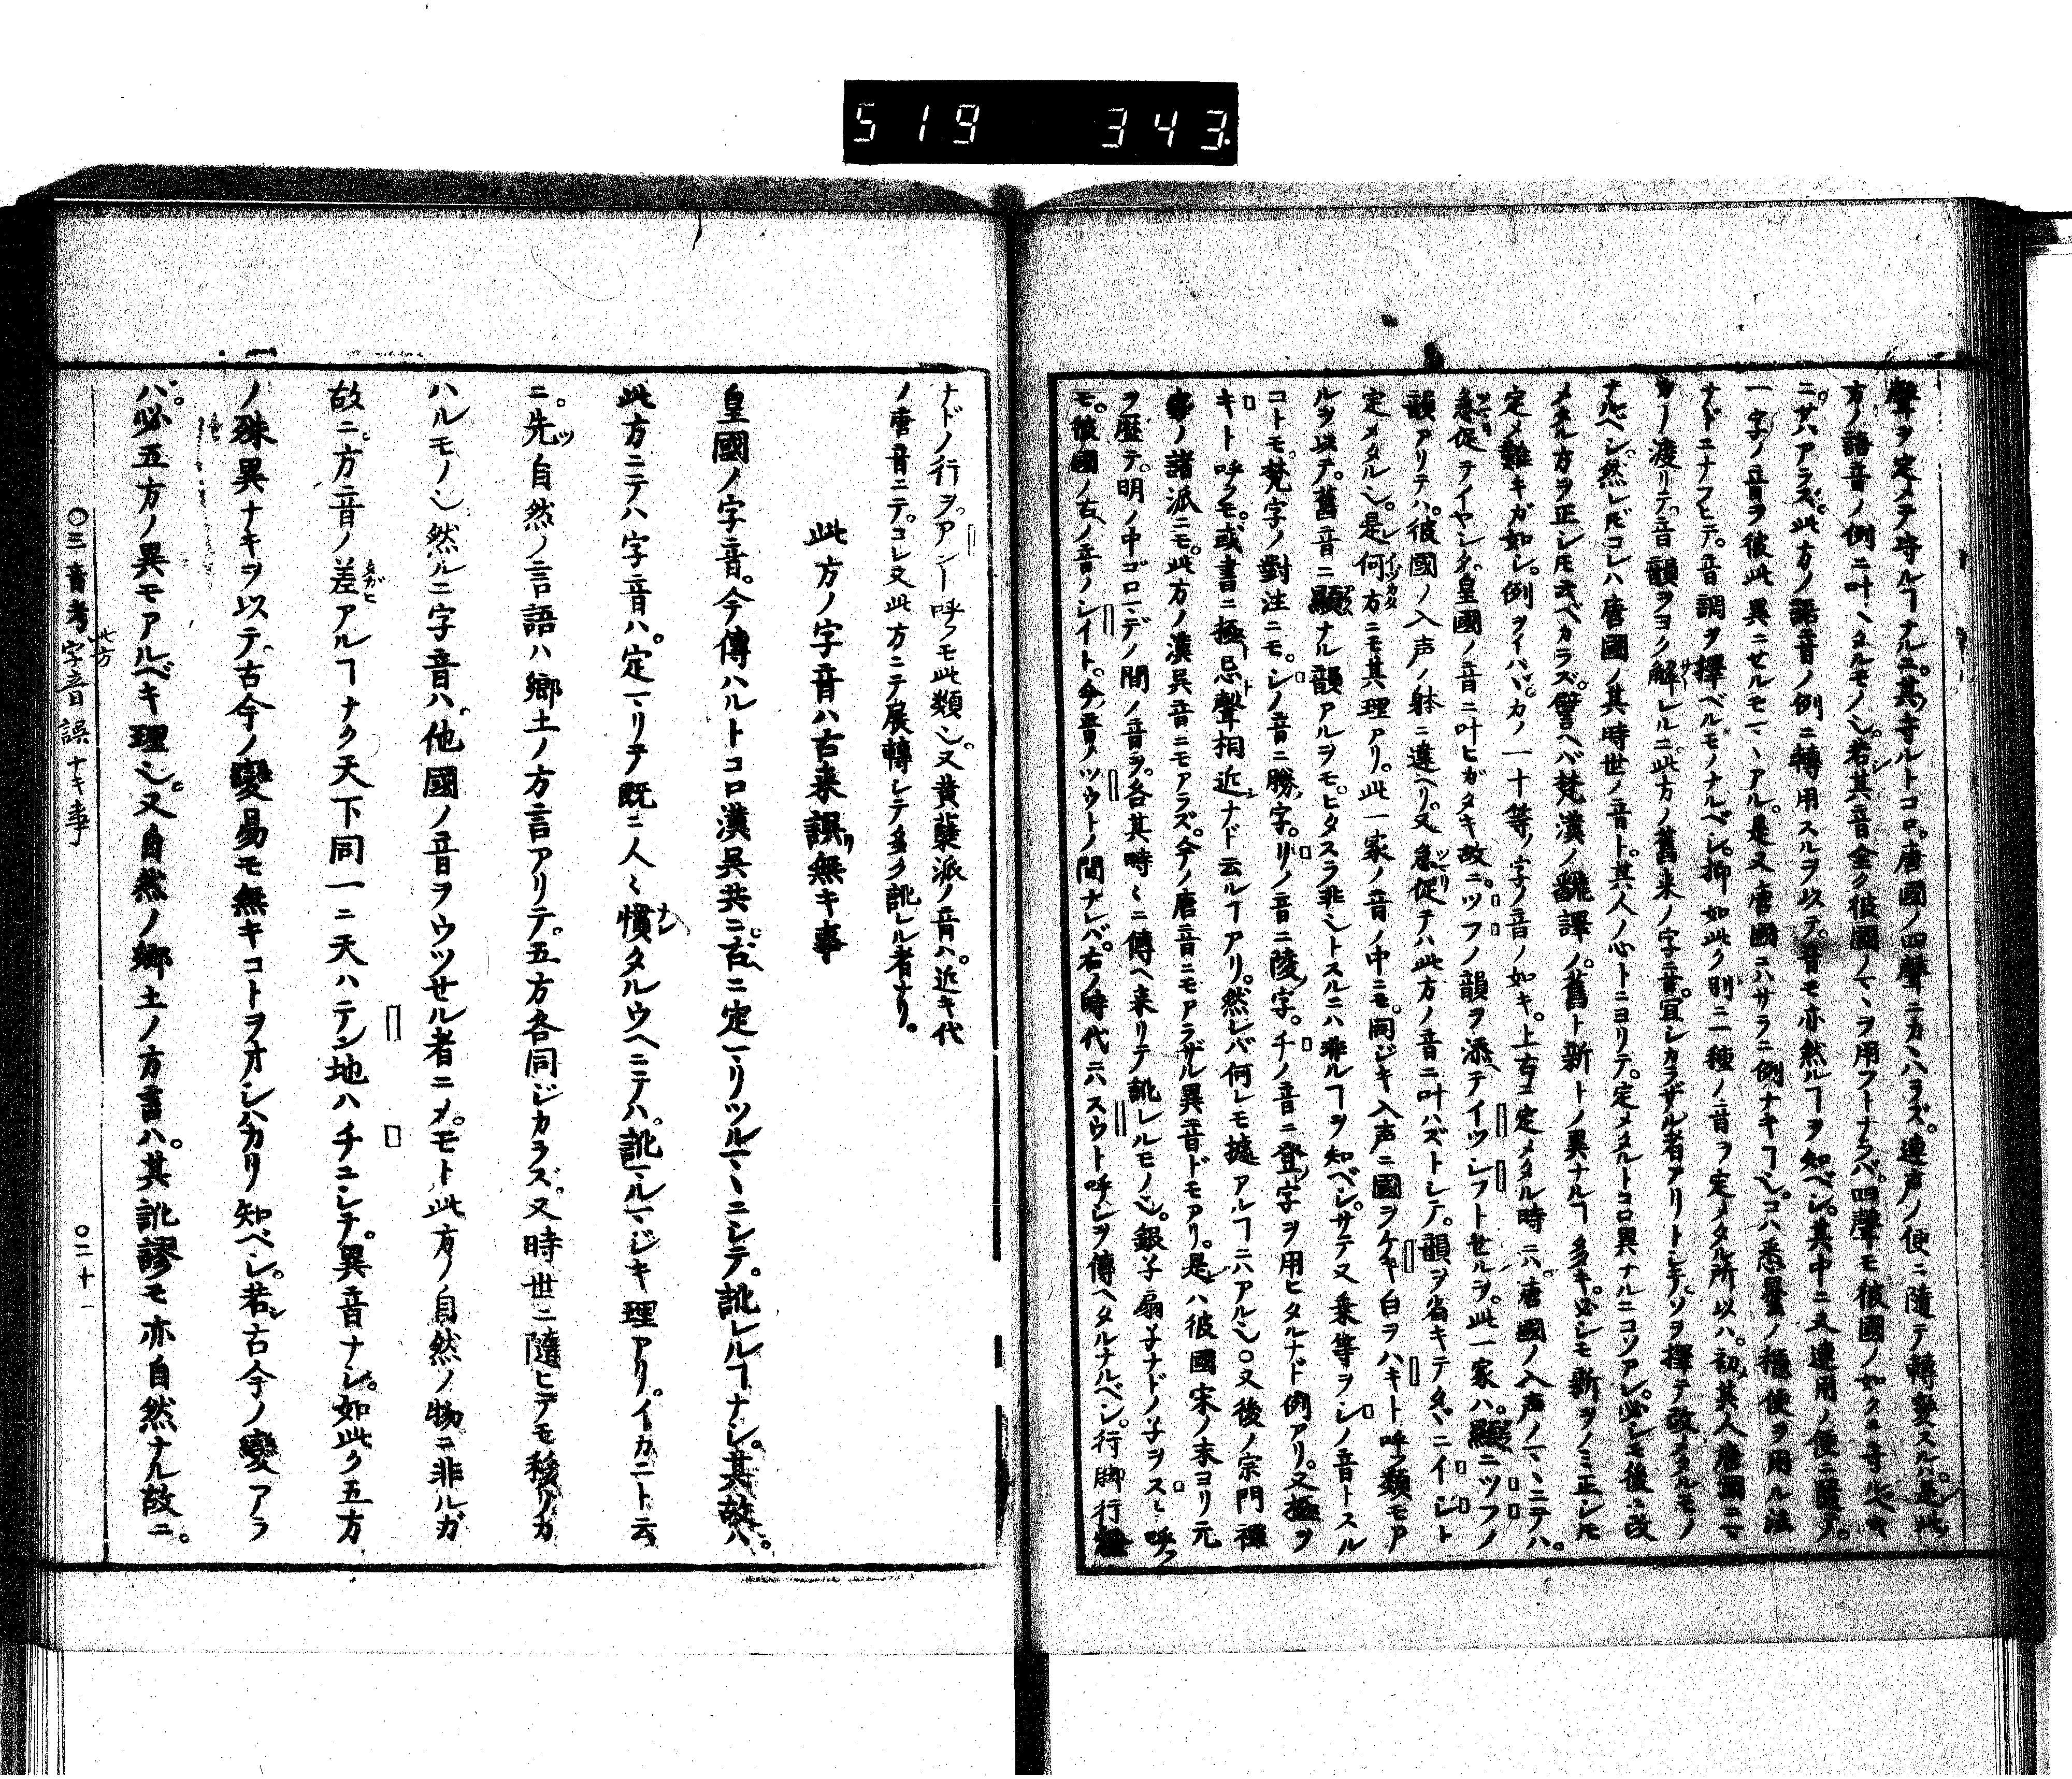 519 343
聲ヲ定メテ守ルヿナルニ。其守ルトコロ。唐國ノ四聲ニカヽハラズ。連声ノ便ニ隨テ轉變スルハ。是レ此
方ノ語音ノ例ニ叶ヘタルモノ也。若シ其音全ク彼國ノマヽヲ用フトナラバ。四聲モ彼國ノ如クニ守ルベキ
ニ。サハアラズ。此方ノ語音ノ例ニ轉用スルヲ以テ。音モ亦然ルヿヲ知ベシ。其中ニ又連用ノ便ニ隨テ。
一字ノ音ヲ彼此異ニセルモマヽアル。是又唐國ニハサラニ例ナキヿ也。コハ悉曇ノ穩便ヲ用ル法
ナドニナラヒテ。音調ヲ擇ベルモノナルベシ。抑如此ク別ニ一種ノ音ヲ定メタル所以ハ。初メ其人唐國ニ
ノ渡リテ。音韻ヲヨク解レルニ。此方ノ舊来ノ字音。宜シカラザル者アリトシテ。ソヲ擇テ改メタルモノ
ナルベシ。然レドコレハ唐國ノ其時世ノ音ト。其人ノ心トニヨリテ。定メタルトコロ異ナルニコソアレ。必シモ後ニ改
メタル方ヲ正シトモ云ベカラズ。譬ヘバ梵漢ノ飜譯ノ。舊ト新トノ異ナルヿ多キ。必シモ新ヲノミ正シト
定メ難キガ如シ。例ヲイハヾ。カノ一十等ノ字ノ音ノ如キ。上古ニ定メタル時ニハ。唐國ノ入声ノマヽニテハ。
急促ヲイヤシク。皇國ノ音ニ叶ヒガタキ故ニ。ツフノ韻ヲ添テイツシフトセルヲ。此一家ハ。顯ニツフノ
韻アリテハ。彼國ノ入声ノ躰ニ違ヘリ。又急促テハ此方ノ音ニ叶ハズトシテ。韻ヲ省キテタヾニイシト
定メタル也。是レ何方ニモ其理アリ。此一家ノ音ノ中ニモ。同ジキ入声ニ國ヲケキ白ヲハキト呼フ類モア
ルヲ以テ。舊音ニ顯ナル韻アルヲモ。ヒタスラ非也トスルニハ非ルヿヲ知ベシ。サテ又乗等ヲシノ音トスル
コトモ。梵字ノ對注ニモ。シノ音ニ勝字。リノ音ニ陵字。チノ音ニ登字ヲ用ヒタルナド例アリ。又極ヲ
キト呼フモ。或書ニ極ト忌聲相近シナド云ルヿアリ。然レバ何レモ據アルヿニハアル也○又後ノ宗門禪
家ノ諸派ニモ。此方ノ漢吳音ニモアラズ。今ノ唐音ニモアラザル異音ドモアリ。是レハ彼國宋ノ末ヨリ元
ヲ歴テ。明ノ中ゴロマデノ間ノ音ヲ。各其時〻ニ傳ヘ来リテ訛レルモノ也。銀子扇子ナドノ子ヲスト呼フ
モ。彼國ノ古ノ音ノシイト。今ノ音ノツウトノ間ナレバ。右ノ時代ニハスウト呼シヲ傳ヘタルナルベシ。行脚行
ナドノ行ヲ。アント呼フモ此類也。又黄蘗派ノ音ハ。近キ代
ノ唐音ニテ。コレ又此方ニテ展轉シテ多ク訛レル者ナリ。
此方ノ字音ハ古来誤リ無キ事
皇國ノ字音。今傳ハルトコロ漢吳共ニ。古ヘニ定マリツルマヽニシテ。訛レルヿナシ。其故ハ。
此方ニテハ字音ハ。定マリヲ既ニ人〻慣ナレタルウヘニテハ。訛マルマジキ理アリ。イカニト云
ニ。先ツ自然ノ言語ハ郷土ノ方言アリテ。五方各同ジカラズ。又時世ニ隨ヒテモ移リカ
ハルモノ也然ルニ字音ハ。他國ノ音ヲウツセル者ニメ。モト此方ノ自然ノ物ニ非ルガ
故ニ。方音ノ差タガヒアルヿナク天下同一ニ天ハテン地ハチニシテ。異音ナシ。如此ク五方
ノ殊異ナキヲ以テ。古今ノ變易モ無キコトヲオシハカリ知ベシ。若シ古今ノ變アラ
バ。必五方ノ異モアルベキ理也。又自然ノ郷土ノ方言ハ。其訛謬モ亦自然ナル故ニ。
○三音考 此方字音誤ナキ事 ○二十一